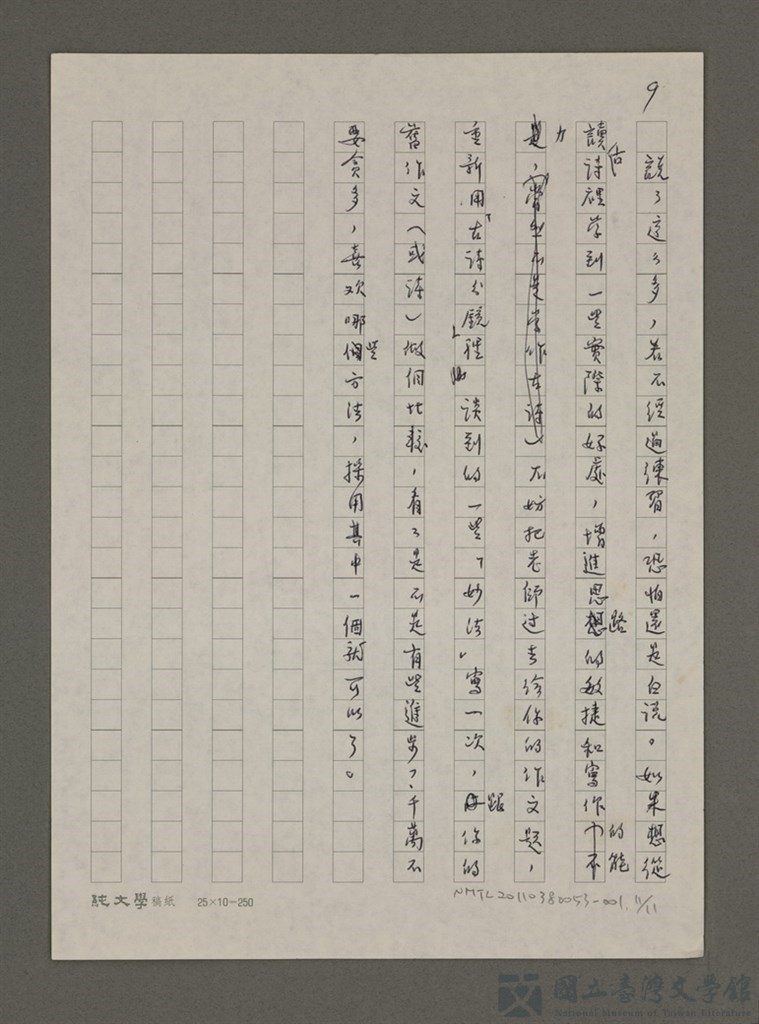 9
說了這么多，若不經過練習，恐怕還是白说。如果想從
讀古诗裡学到一些實際的好處，增進思路的敏捷和寫作的能
力，不妨把老師过去给你的作文題，
重新用「古詩分鏡裡」談到的一些「妙法」寫一次，跟你的
舊作文（或诗）做個比較，看了是不是有些進步了，千萬不
要貪多，喜欢哪些方法，採用其中一個就可以了。
純文學稿紙 25×10=250
NMTL20110380053-001. 11/11
國立臺灣文學館
National Museum of Taiwan Literature